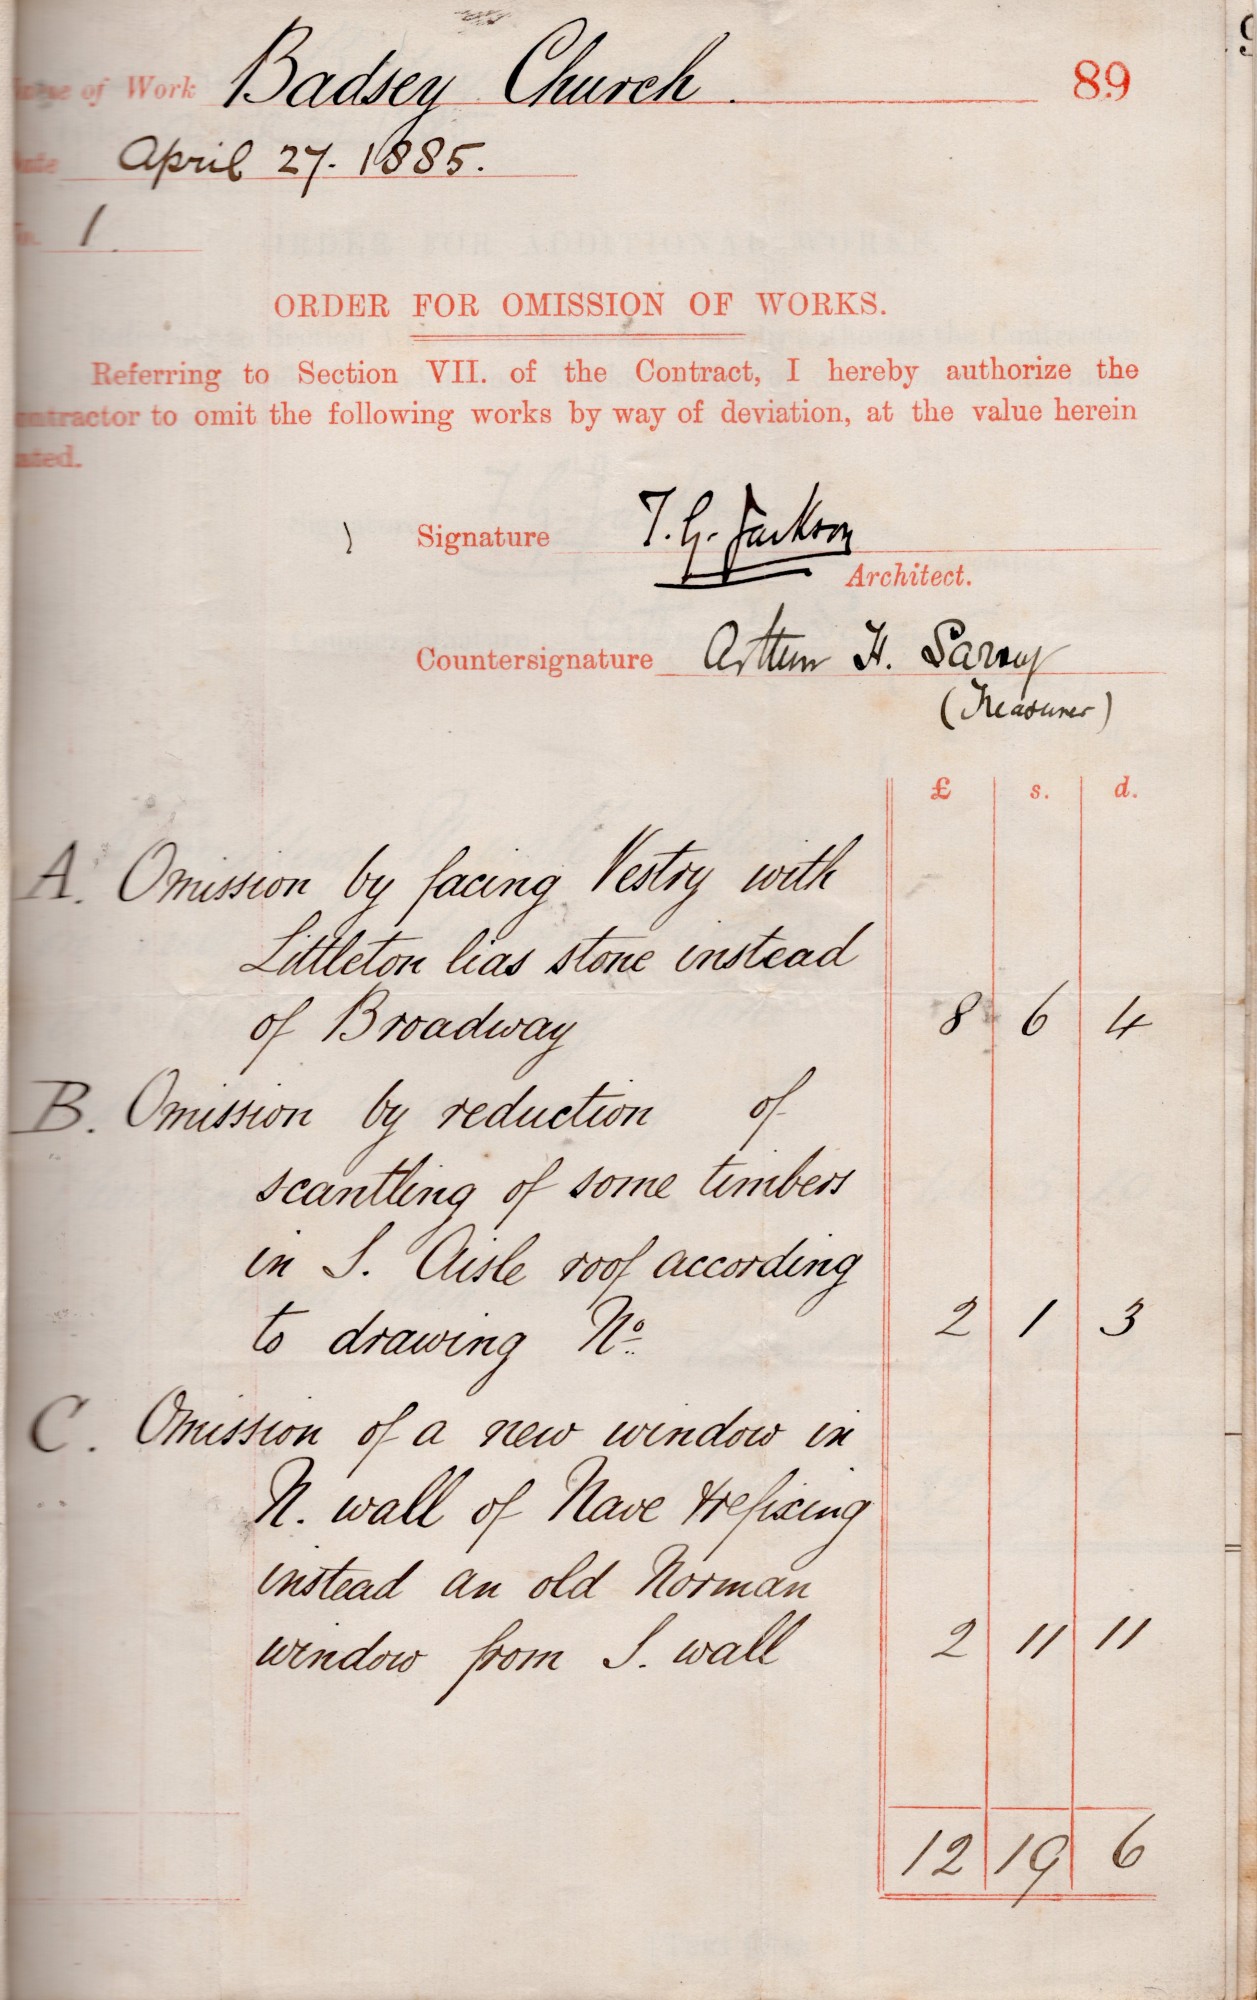 of Work Badsey Church. 89
April 27. 1885.
1
ORDER FOR OMISSION OF WORKS.
Referring to Section VII. of the Contract, I hereby authorize the
ontractor to omit the following works by way of deviation, at the value herein
ated.
Signature T. G. Jackson
Architect.
Countersignature Arthur H. Savory
(Treasurer)
£ s. d.
A. Omission by facing Vestry with
Littleton lias stone instead
of Broadway 8 6 4
B. Omission by reduction of
scantling of some timbers
in S. Aisle roof according
to drawing No. 2 1 3
C. Omission of a new window in
N. wall of Nave & refixing
instead an old Norman
window from S. wall 2 11 11
12 19 6